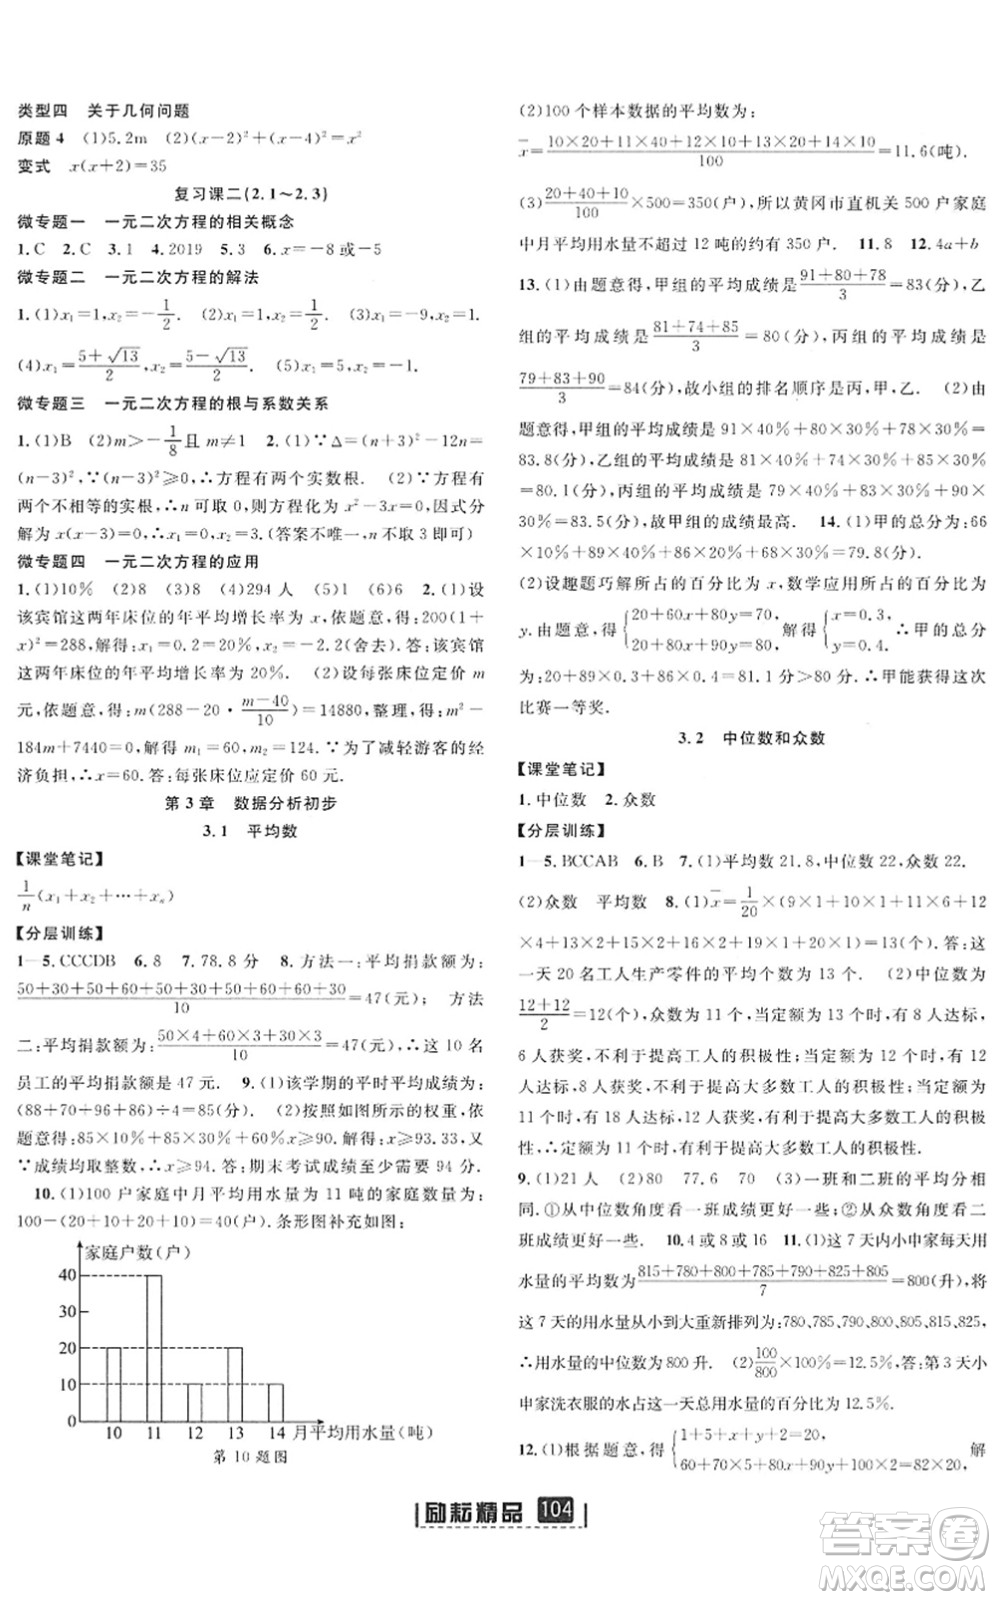 类型四　关于几何问题
原题 4　(1)5.2m　(2)(x－2)²＋(x－4)²＝x²
变式　x(x＋2)＝35
复习课二(2.1～2.3)
微专题一　一元二次方程的相关概念
1.C　2.C　3.1　4.2019　5.3　6.x＝－8或－5
微专题二　一元二次方程的解法
1.(1)x₁＝1,x₂＝－1/2.　(2)x₁＝1,x₂＝2.　(3)x₁＝－9,x₂＝1.
(4)x₁＝(5＋√13)/2,x₂＝(5－√13)/2.　(5)x₁＝5,x₂＝－1.
微专题三　一元二次方程的根与系数关系
1.(1)B　(2)m＞－1/8且 m≠1　2.(1)∵Δ＝(n＋3)²－12n＝
(n－3)²,∵(n－3)²≥0,∴方程有两个实数根.　(2)∵方程有
两个不相等的实根,∴n可取 0,则方程化为 x²－3x＝0,因式分
解为 x(x－3)＝0,∴x₁＝0,x₂＝3.(答案不唯一,n 取 3 即可)
微专题四　一元二次方程的应用
1.(1)10%　(2)8　(3)2　(4)294人　(5)1　(6)6　2.(1)设
该宾馆这两年床位的年平均增长率为 x,依题意,得:200(1＋
x)²＝288,解得:x₁＝0.2＝20%,x₂＝－2.2(舍去).答:该宾馆
这两年床位的年平均增长率为 20%.　(2)设每张床位定价 m
元,依题意,得:m(288－20·(m－40)/10)＝14880,整理,得:m²－
184m＋7440＝0,解得:m₁＝60,m₂＝124.∵为了减轻游客的经
济负担,∴x＝60.答:每张床位应定价 60 元.
第 3 章　数据分析初步
3.1　平均数
【课堂笔记】
1/n(x₁＋x₂＋⋯＋xₙ)
【分层训练】
1—5.CCCDB　6.8　7.78.8 分　8.方法一:平均捐款额为:
(50＋30＋50＋50＋30＋50＋60＋60＋60＋30)/10＝47(元);　方法
二:平均捐款额为:(50×4＋60×3＋30×3)/10＝47(元),∴这 10 名
员工的平均捐款额是 47 元.　9.(1)该学期的平时平均成绩为:
(88＋70＋96＋86)÷4＝85(分).　(2)按照如图所示的权重,依
题意得:85×10%＋85×30%＋60%x≥90.解得:x≥93.33,又
∵成绩均取整数,∴x≥94.答:期末考试成绩至少需要 94 分.
10.(1)100 户家庭中月平均用水量为 11 吨的家庭数量为:
100－(20＋10＋20＋10)＝40(户).条形图补充如图:
家庭户数(户)
40
30
20
10
0
10 11 12 13 14 月平均用水量(吨)
第 10 题图
(2)100 个样本数据的平均数为:
x̄＝(10×20＋11×40＋12×10＋13×20＋14×10)/100＝11.6(吨).
(3)(20＋40＋10)/100×500＝350(户),所以黄冈市直机关 500 户家庭
中月平均用水量不超过 12 吨的约有 350 户.　11.8　12.4a＋b
13.(1)由题意可得,甲组的平均成绩是(91＋80＋78)/3＝83(分),乙
组的平均成绩是(81＋74＋85)/3＝80(分),丙组的平均成绩是
(79＋83＋90)/3＝84(分),故小组的排名顺序是丙,甲,乙.　(2)由
题意可得,甲组的平均成绩是 91×40%＋80×30%＋78×30%＝
83.8(分),乙组的平均成绩是 81×40%＋74×30%＋85×30%
＝80.1(分),丙组的平均成绩是 79×40%＋83×30%＋90×
30%＝83.5(分),故甲组的成绩最高.　14.(1)甲的总分为:66
×10%＋89×40%＋86×20%＋68×30%＝79.8(分).
(2)设趣题巧解所占的百分比为 x,数学应用所占的百分比为
y.由题意,得{20＋60x＋80y＝70,20＋80x＋90y＝80,解得{x＝0.3,y＝0.4.∴甲的总分
为:20＋89×0.3＋86×0.4＝81.1＞80.∴甲能获得这次
比赛一等奖.
3.2　中位数和众数
【课堂笔记】
1.中位数　2.众数
【分层训练】
1—5.BCCAB　6.B　7.(1)平均数 21.8,中位数 22,众数 22.
(2)众数　平均数　8.(1)x̄＝1/20×(9×1＋10×1＋11×6＋12
×4＋13×2＋15×2＋16×2＋19×1＋20×1)＝13(个).答:这
一天 20 名工人生产零件的平均个数为 13 个.　(2)中位数为
(12＋12)/2＝12(个),众数为 11 个.当定额为 13 个时,有 8 人达标,
6 人获奖,不利于提高工人的积极性;当定额为 12 个时,有 12
人达标,6 人获奖,不利于提高大多数工人的积极性;当定额为
11 个时,有 18 人达标,12 人获奖,有利于提高大多数工人的积极
性;∴定额为 11 个时,有利于提高大多数工人的积极性.
9.(1)21人　(2)80　77.6　70　(3)一班和二班的平均分相
同.①从中位数角度看一班成绩更好一些;②从众数角度看二
班成绩更好一些.　10.4 或 8 或 16　11.(1)这 7 天内小申家每天用
水量的平均数为(815＋780＋800＋785＋790＋825＋805)/7＝800(升),将
这 7 天的用水量从小到大重新排列为:780,785,790,800,805,815,825,
∴用水量的中位数为 800 升.　(2)100/800×100%＝12.5%,答:第 3 天小
申家洗衣服的水占这一天总用水量的百分比为 12.5%.
12.(1)根据题意,得{1＋5＋x＋y＋2＝20,60＋70×5＋80x＋90y＋100×2＝1600,　解
励耘精品 104
答案圈
MXQE.COM